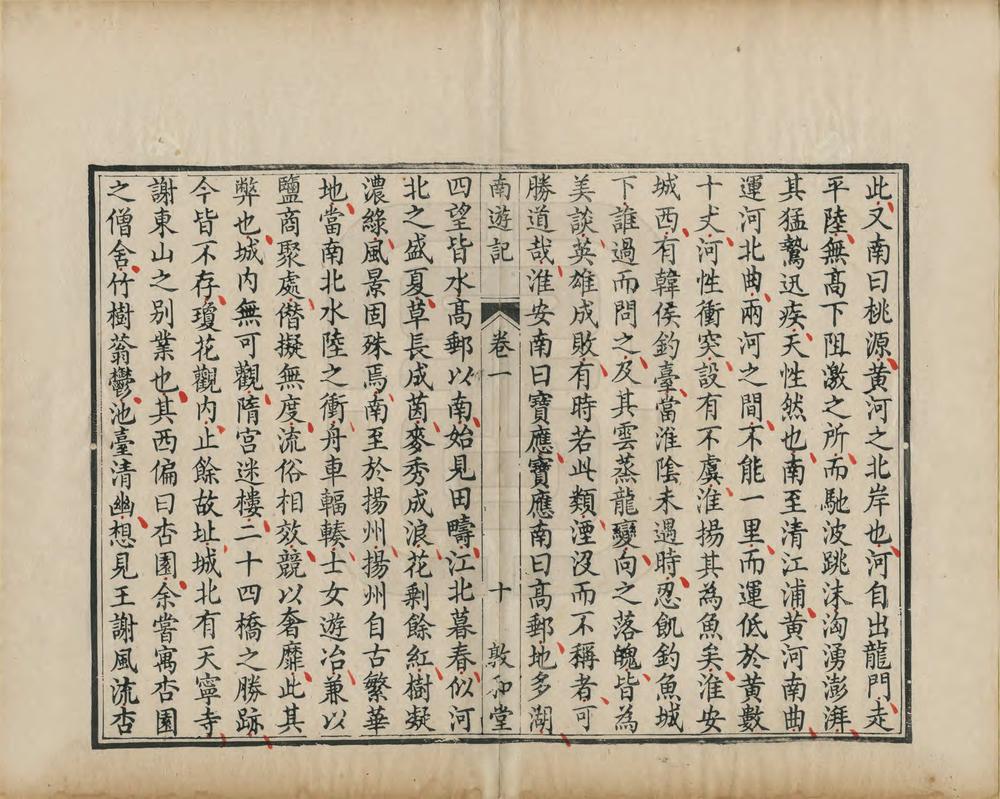 此又南曰桃源黄河之北岸也河自出龍門走
平陸無高下阻激之所而馳波跳沫洶湧澎湃
其猛鷙迅疾天性然也南至清江浦黄河南曲
運河北曲兩河之間不能一里而運低於黄數
十丈河性衝突設有不虞淮揚其為魚矣淮安
城西有韓侯釣臺當淮陰未遇時忍飢釣魚城
下誰過而問之及其雲蒸龍變向之落魄皆為
美談英雄成敗有時若此類湮沒而不稱者可
勝道哉淮安南曰寶應寶應南曰髙郵地多湖
南遊記 卷一 十 敦和堂
四望皆水髙郵以南始見田疇江北暮春似河
北之盛夏草長成茵麥秀成浪花剩餘紅樹凝
濃綠風景固殊焉南至於揚州揚州自古繁華
地當南北水陸之衝舟車輻輳士女遊冶兼以
鹽商聚處僭擬無度流俗相效競以奢靡此其
弊也城内無可觀隋宫迷樓二十四橋之勝跡
今皆不存瓊花觀内止餘故址城北有天寧寺
謝東山之别業也其西偏曰杏園余嘗寓杏園
之僧舍竹樹蓊鬱池臺清幽想見王謝風流杏